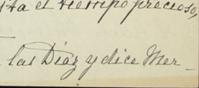 ta el tiempo precioso,
las Diaz y dice Mer-